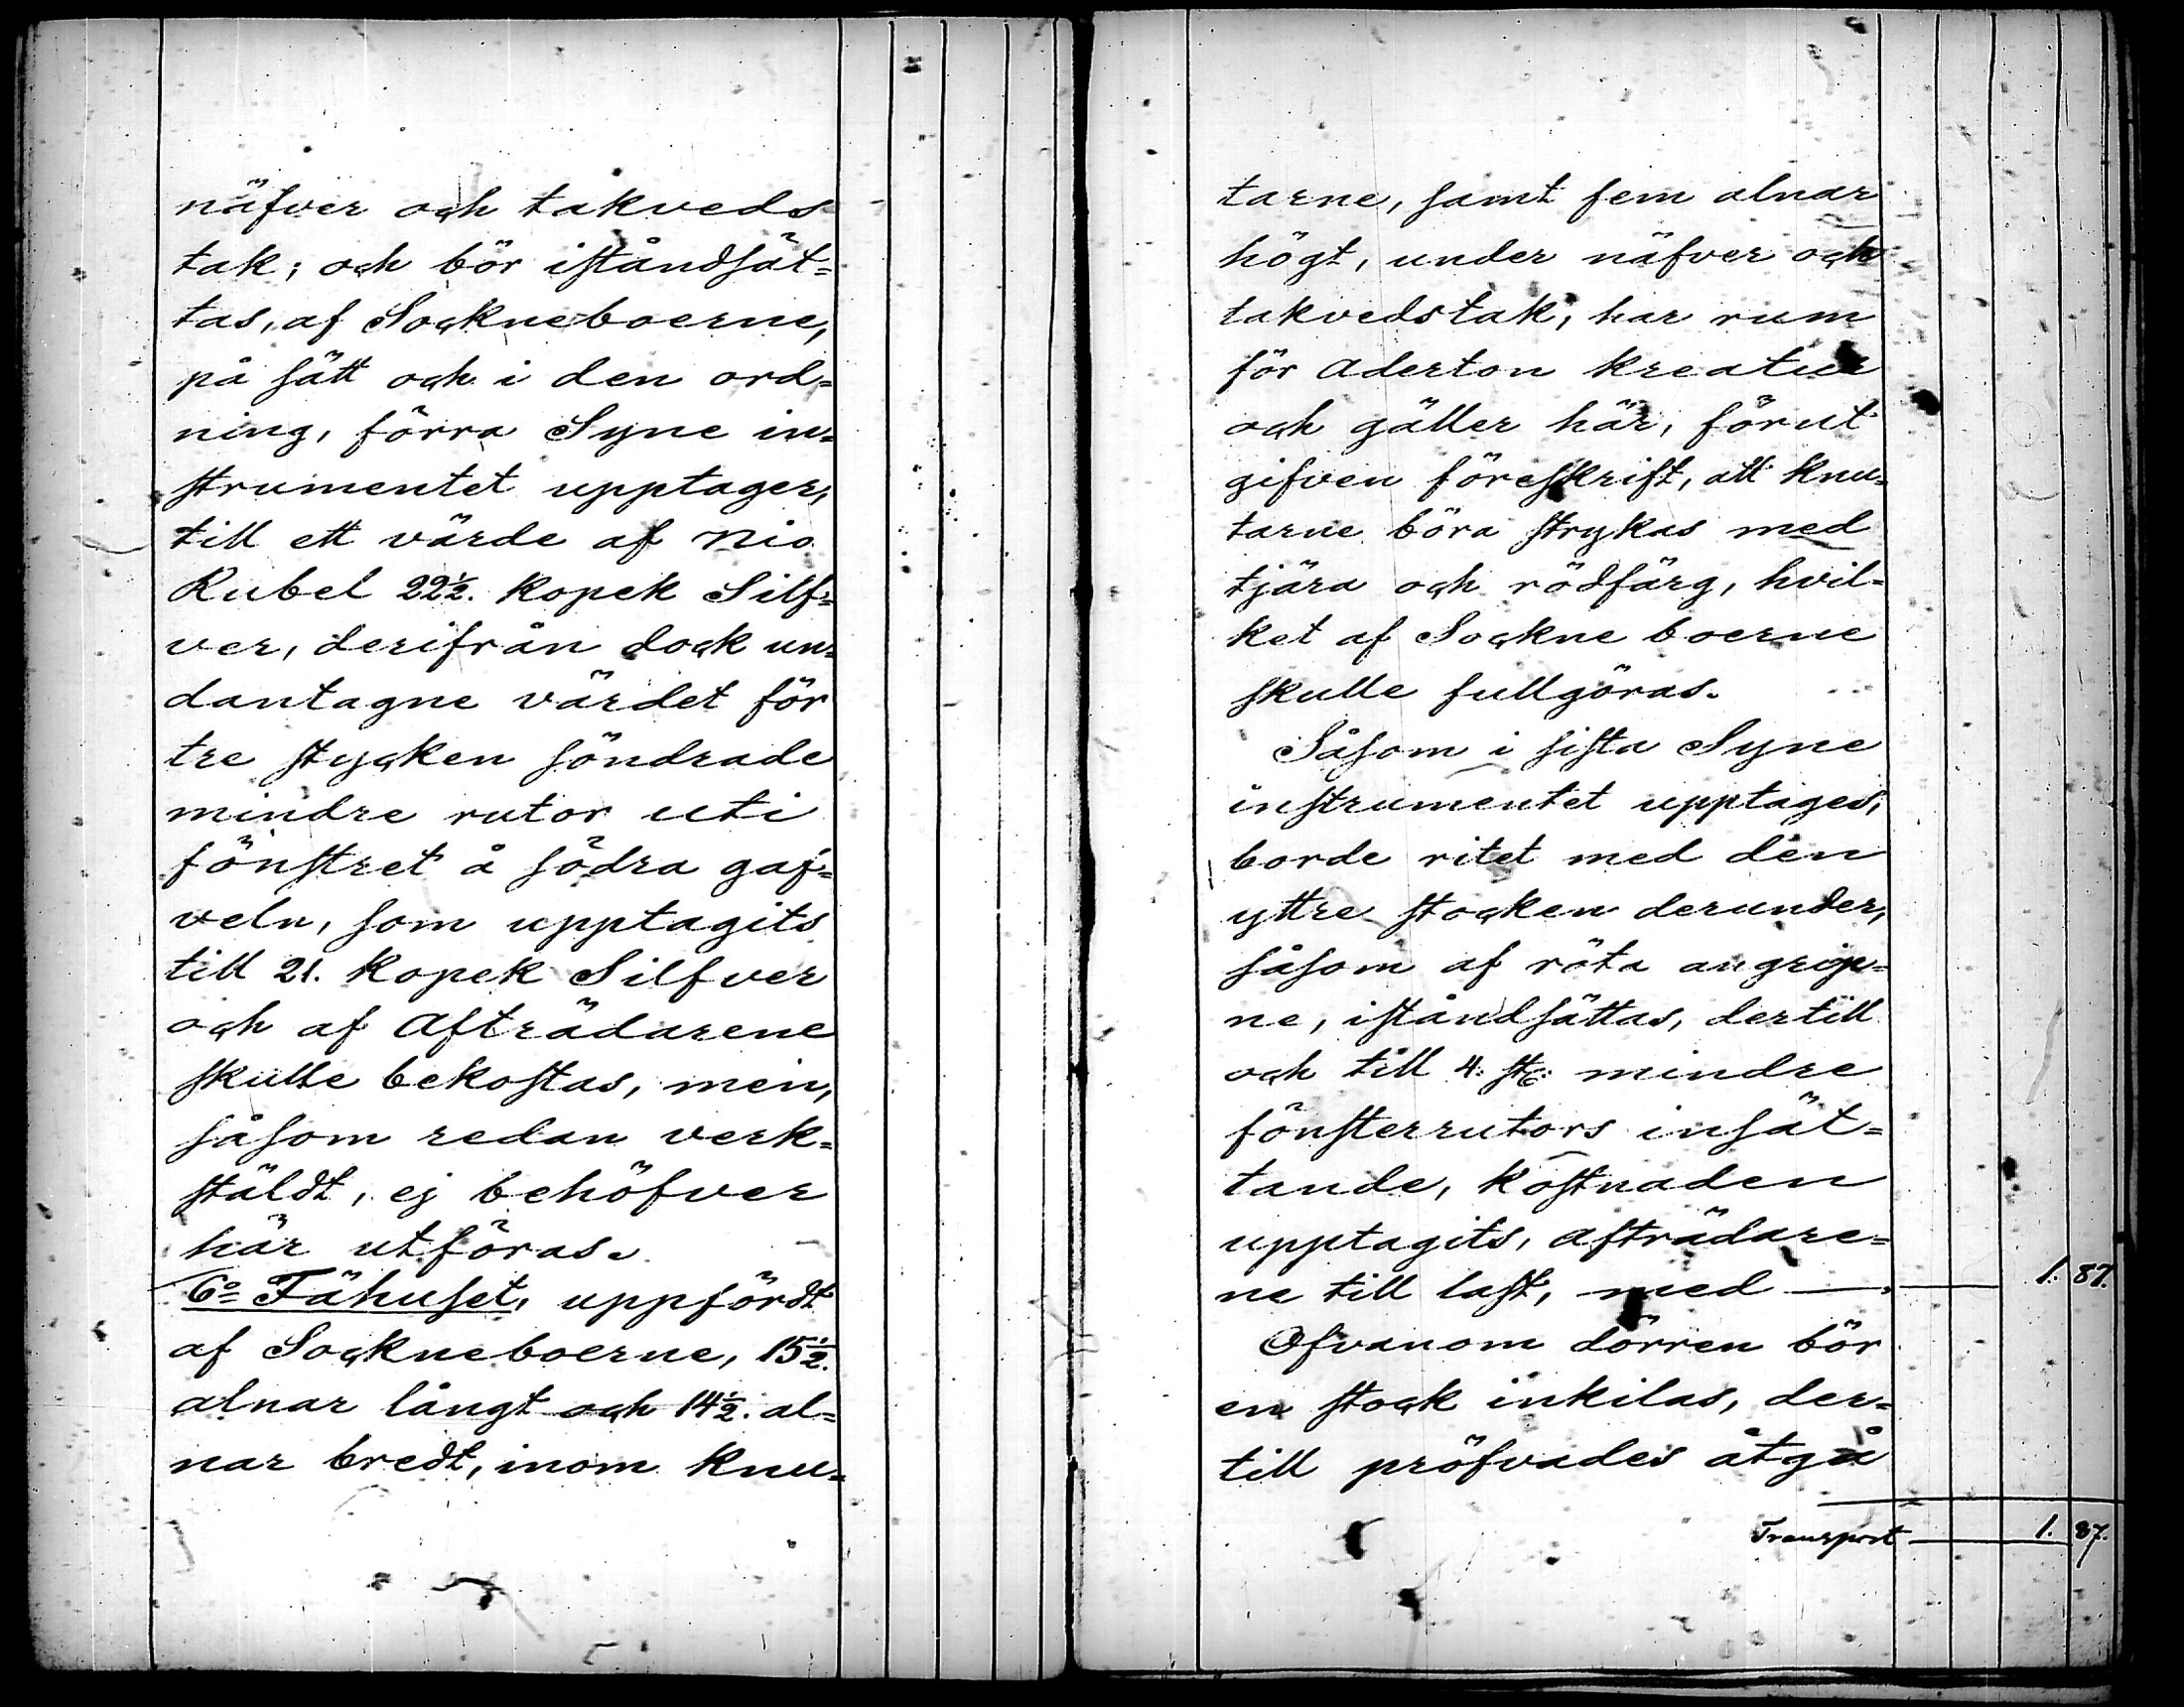 näfver och takveds
tak; och bör iståndsät=
tas, af Sockneboerne,
på sätt och i den ord=
ning, förra Syne in=
strumentet upptager,
till ett värde af Nio
Rubel 22½. Kopek Silf=
ver, derifrån dock un=
dantagne värdet för
tre stycken söndrade
mindre rutor uti
fönstret å södra gaf=
veln, som upptagits
till 21. Kopek Silfver
och af Afträdarene
skulle bekostas, men,
såsom redan verk=
stäldt, ej behöfver
här utföras.
6º Fähuset, uppfördt
af Sockneboerne, 15½.
alnar långt och 14½. al=
nar bredt, inom knu=
tarne, samt fem alnar
högt, under näfver och
takvedstak; har rum
för Aderton Kreatur
och gäller här, förut
gifven föreskrift, att knu=
tarne böra strykas med
tjära och rödfärg, hvil=
ket af Sockne boerne
skulle fullgöras.
Såsom i sista Syne
instrumentet upptages,
borde ritet med den
yttre stocken derunder,
såsom af röta angrip=
ne, iståndsättas, dertill
och till 4. st: mindre
fönsterrutors insät=
tande, kostnaden
upptagits, afträdare=
ne till last, med — 1. 87.
Ofvanom dörren bör
en stock inkilas, der=
till pröfvades åtgå
Transport — 1. 87.